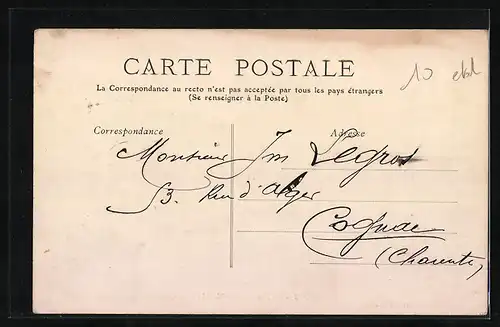 10 
CARTE POSTALE
La Correspondance au recto n'est pas acceptée par tous les pays étrangers
(Se renseigner à la Poste)
Correspondance Adresse
Monsieur Jm Legros
53. Rue d'Alger
Cognac
(Charente)